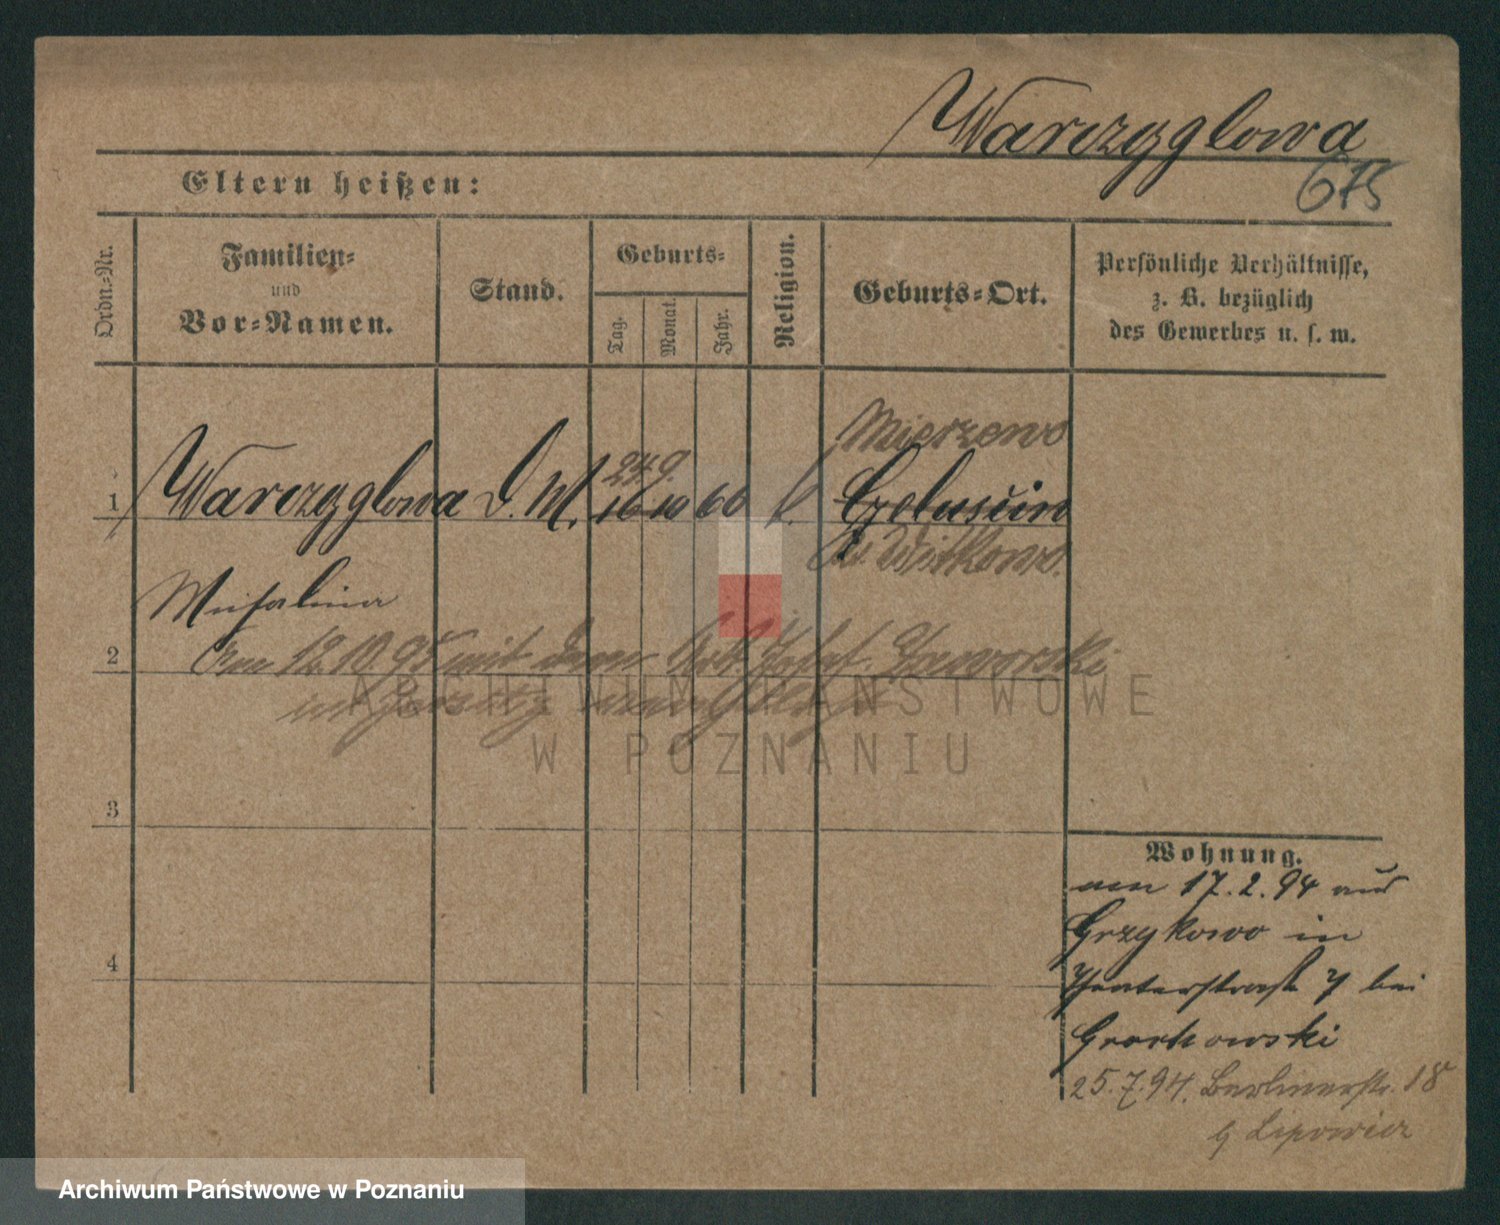 Warczyglowa
675
Eltern heißen:
Ordn.-Nr.
Familien-
und
Vor-Namen.
Stand.
Geburts-
Tag.
Monat.
Jahr.
Religion.
Geburts-Ort.
Persönliche Verhältnisse,
z. B. bezüglich
des Gewerbes u. s. w.
Mierzewo
24 9
1 Warczyglowa D. M. 16 10 60 k.
Kr. Witkowo.
Michalina
2 Am 12.10.95 mit dem Arb. Josef Jaworski
in
ARCHIWUM PAŃSTWOWE
W POZNANIU
3
4
Wohnung.
am 17.2.94 aus
Grzykowo in
Theaterstraße 7 bei
Grochowski
25.7.94. Berlinerstr. 18
b Lipowicz
Archiwum Państwowe w Poznaniu